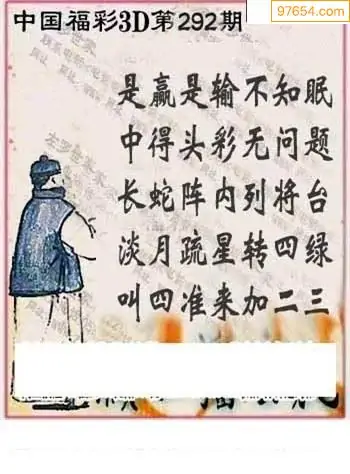 97654.com
中国福彩3D第292期
是赢是输不知眠
中得头彩无问题
长蛇阵内列将台
淡月疏星转四绿
叫四准来加二三